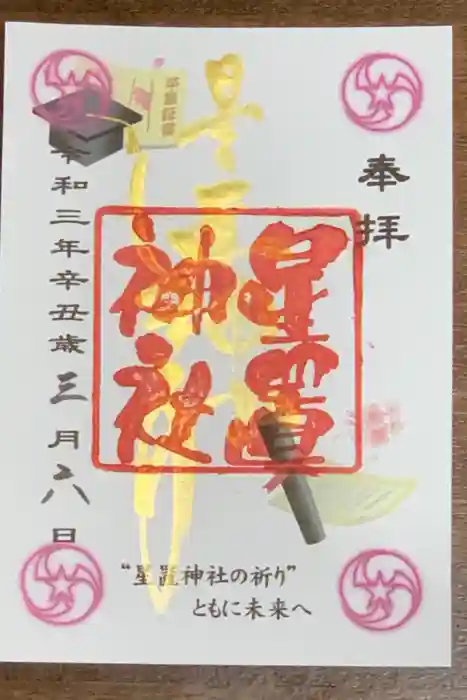 奉拝
星置
神社
卒業証書
令和三年辛丑歳三月六日
“星置神社の祈り”
ともに未来へ